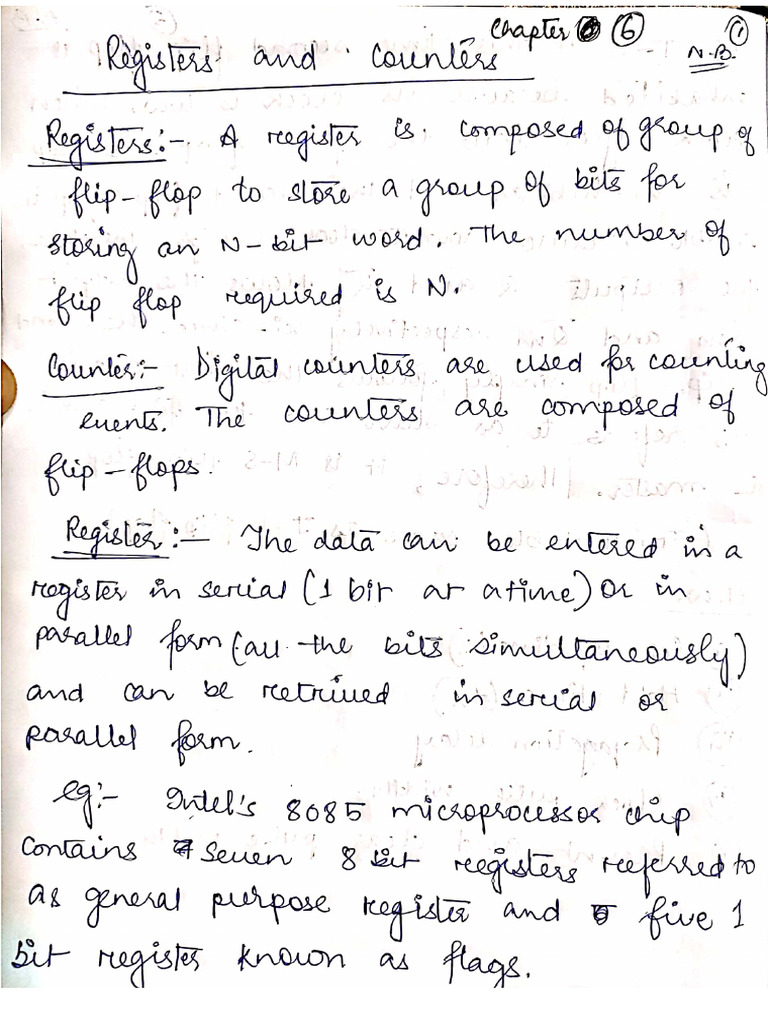 Chapter 6
N.B. 1
Registers and Counters
Registers:- A register is composed of group of
flip-flop to store a group of bits for
storing an N-bit word. The number of
flip flop required is N.
Counter:- Digital counters are used for counting
events. The counters are composed of
flip-flops.
Register:- The data can be entered in a
register in serial (1 bit at a time) or in
parallel form (all the bits simultaneously)
and can be retrived in serial or
parallel form.
eg:- Intel's 8085 microprocessor chip
contains seven 8 bit registers referred to
as general purpose register and five 1
bit register known as flags.